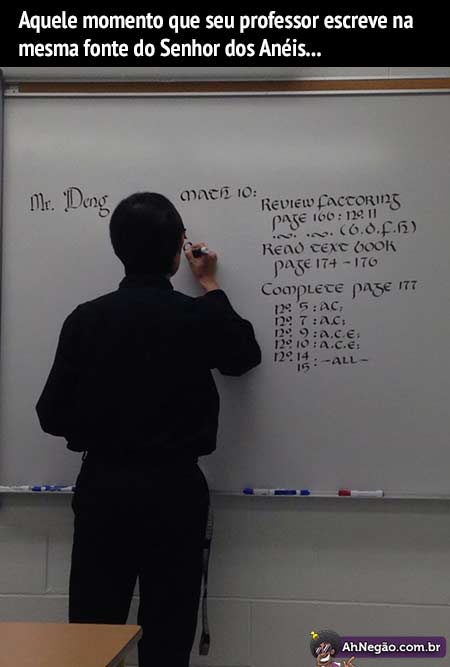 Aquele momento que seu professor escreve na
mesma fonte do Senhor dos Anéis...
Mr. Deng
Math 10:
Review Factoring
page 166: nº 11
(b.d.f.h)
Read text book
page 174 - 176
Complete page 177
nº 5: a.c;
nº 7: a.c;
nº 9: a.c.e;
nº 10: a.c.e;
nº 14:
15: -all-
AhNegão.com.br